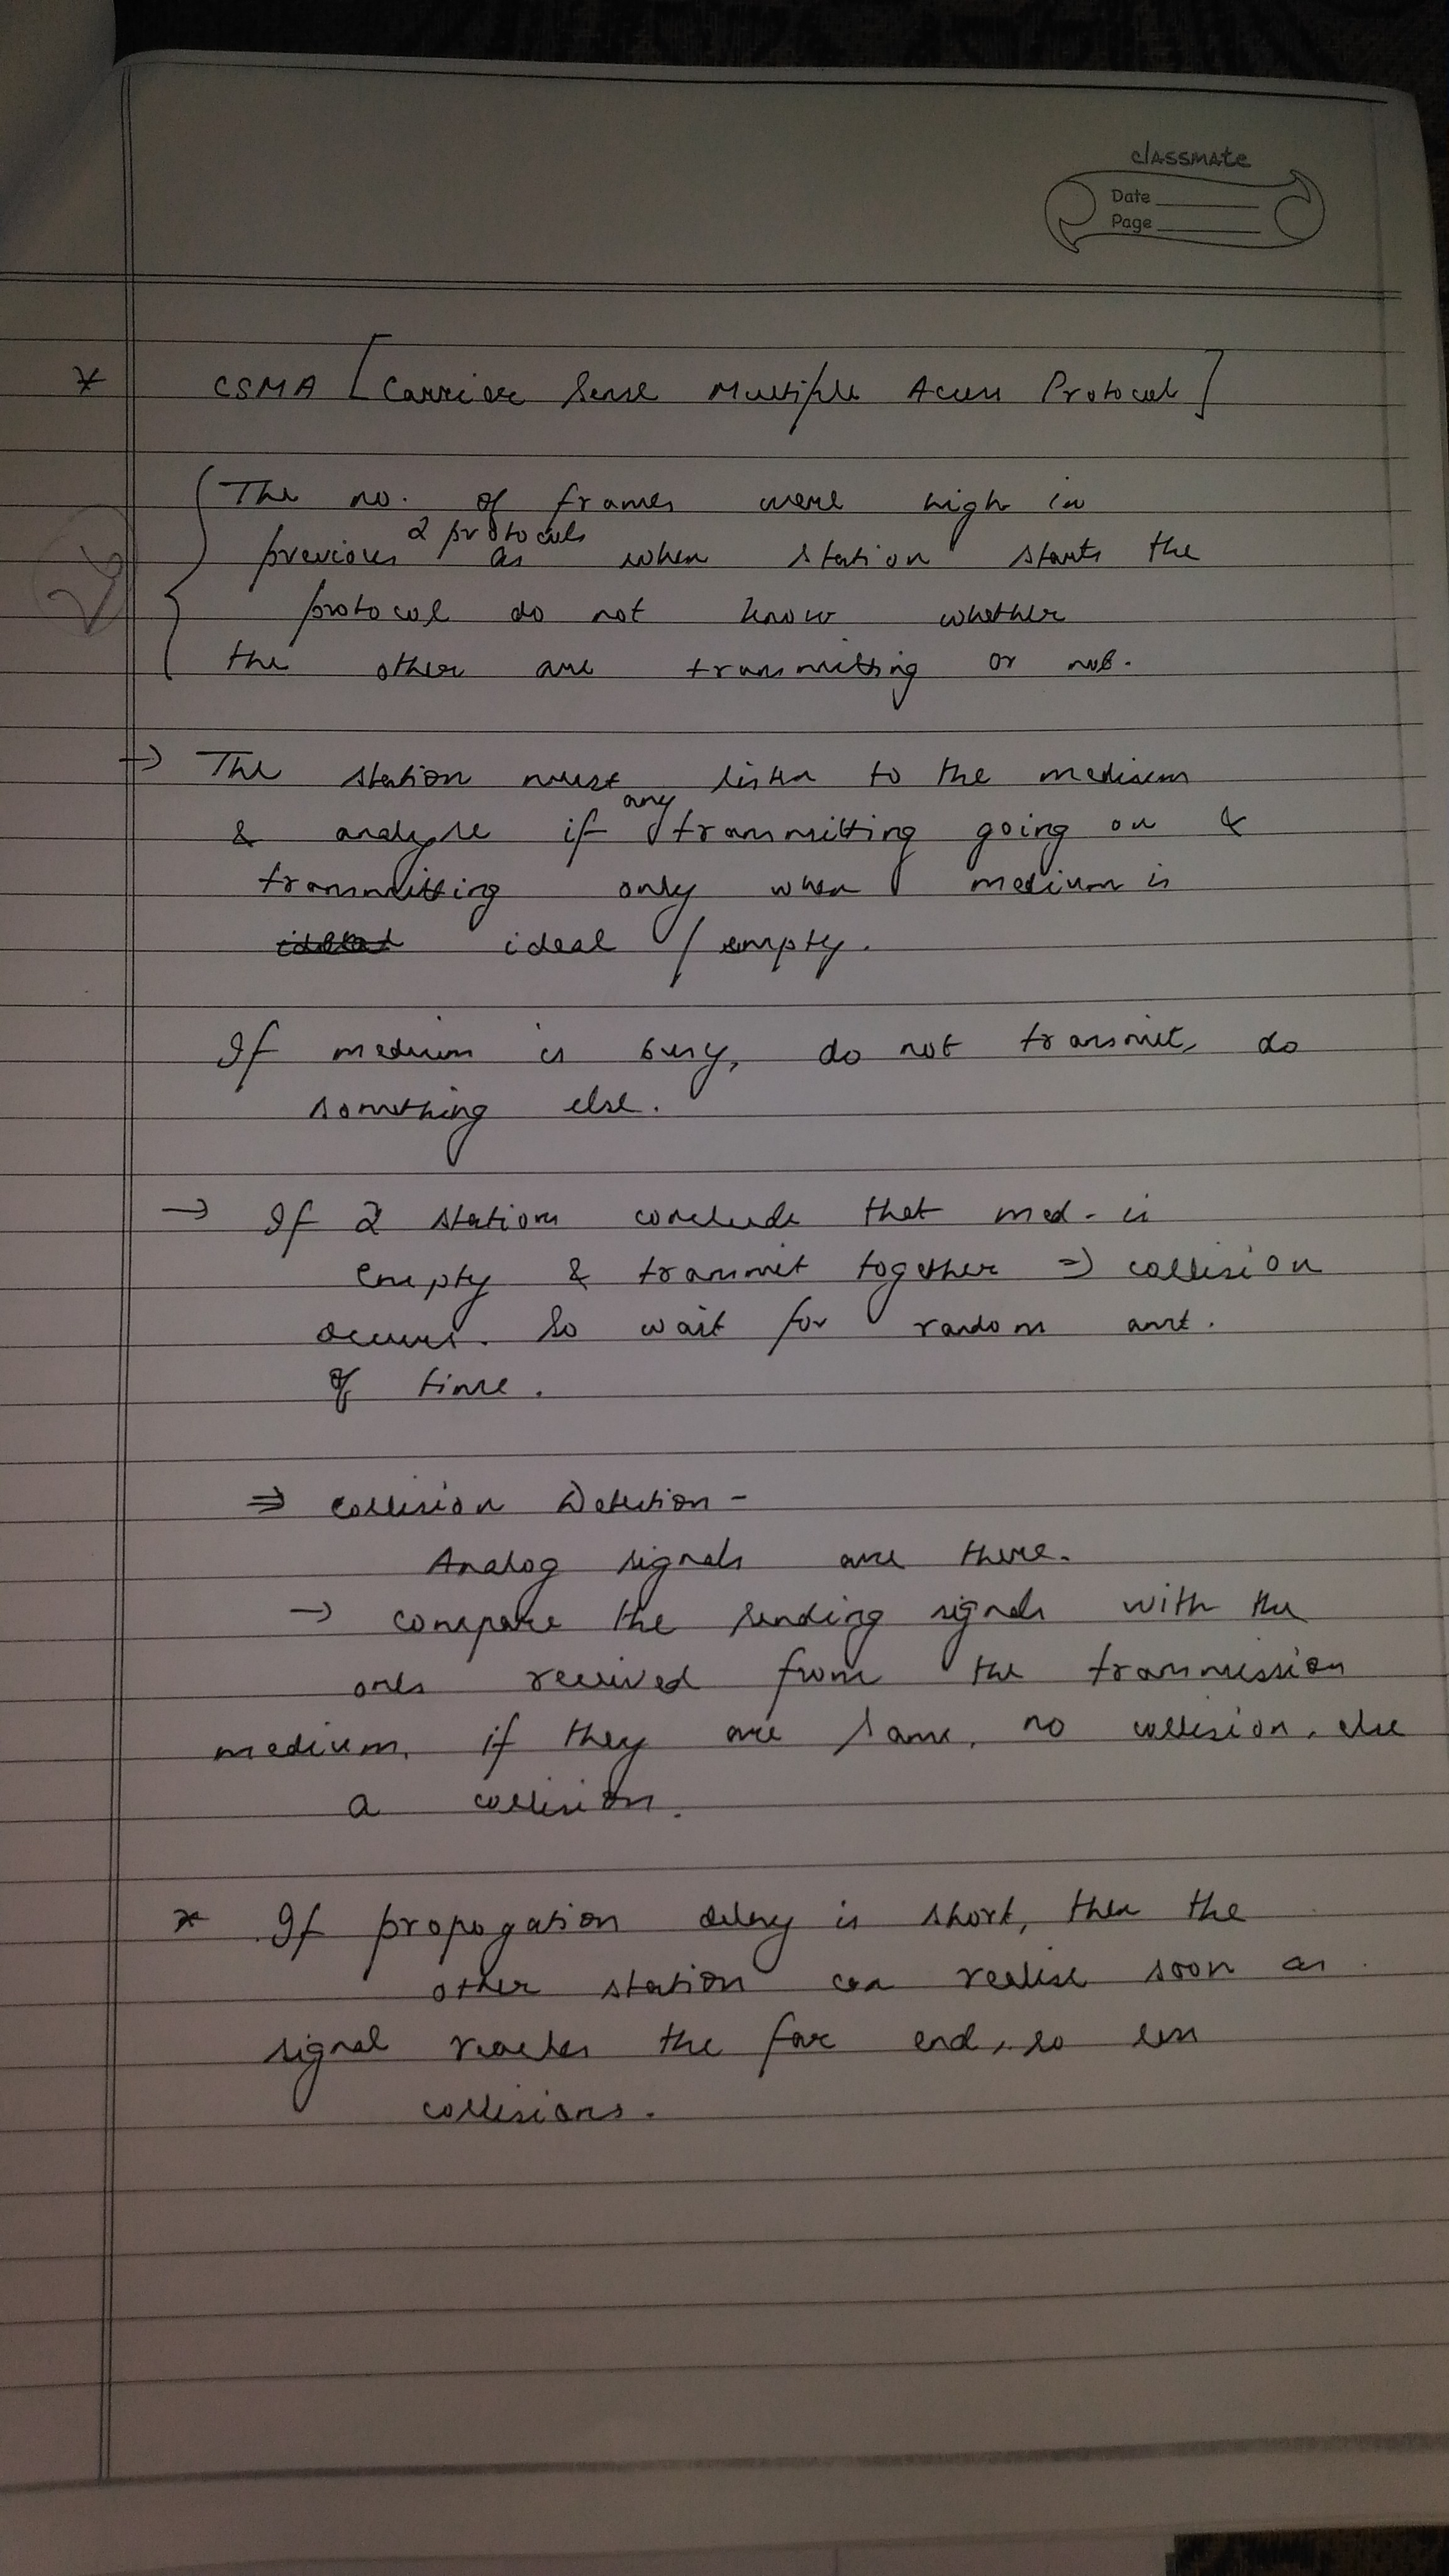 classmate
Date
Page
* CSMA [Carrier Sense Multiple Access Protocol]
The no. of frames were high in
2 protocols
previous as when station starts the
protocol do not know whether
the other are transmitting or not.
→ The station must listen to the medium
any
& analyse if transmitting going on &
transmitting only when medium is
ideal / empty.
If medium is busy, do not transmit, do
something else.
→ If 2 stations conclude that med. is
empty & transmit together ⇒ collision
occurs. So wait for random amt.
of time.
⇒ Collision Detection -
Analog signals are there.
→ compare the sending signals with the
ones received from the transmission
medium, if they are same, no collision, else
a collision.
* If propogation delay is short, then the
other station can realise soon as
signal reaches the far end, so less
collisions.